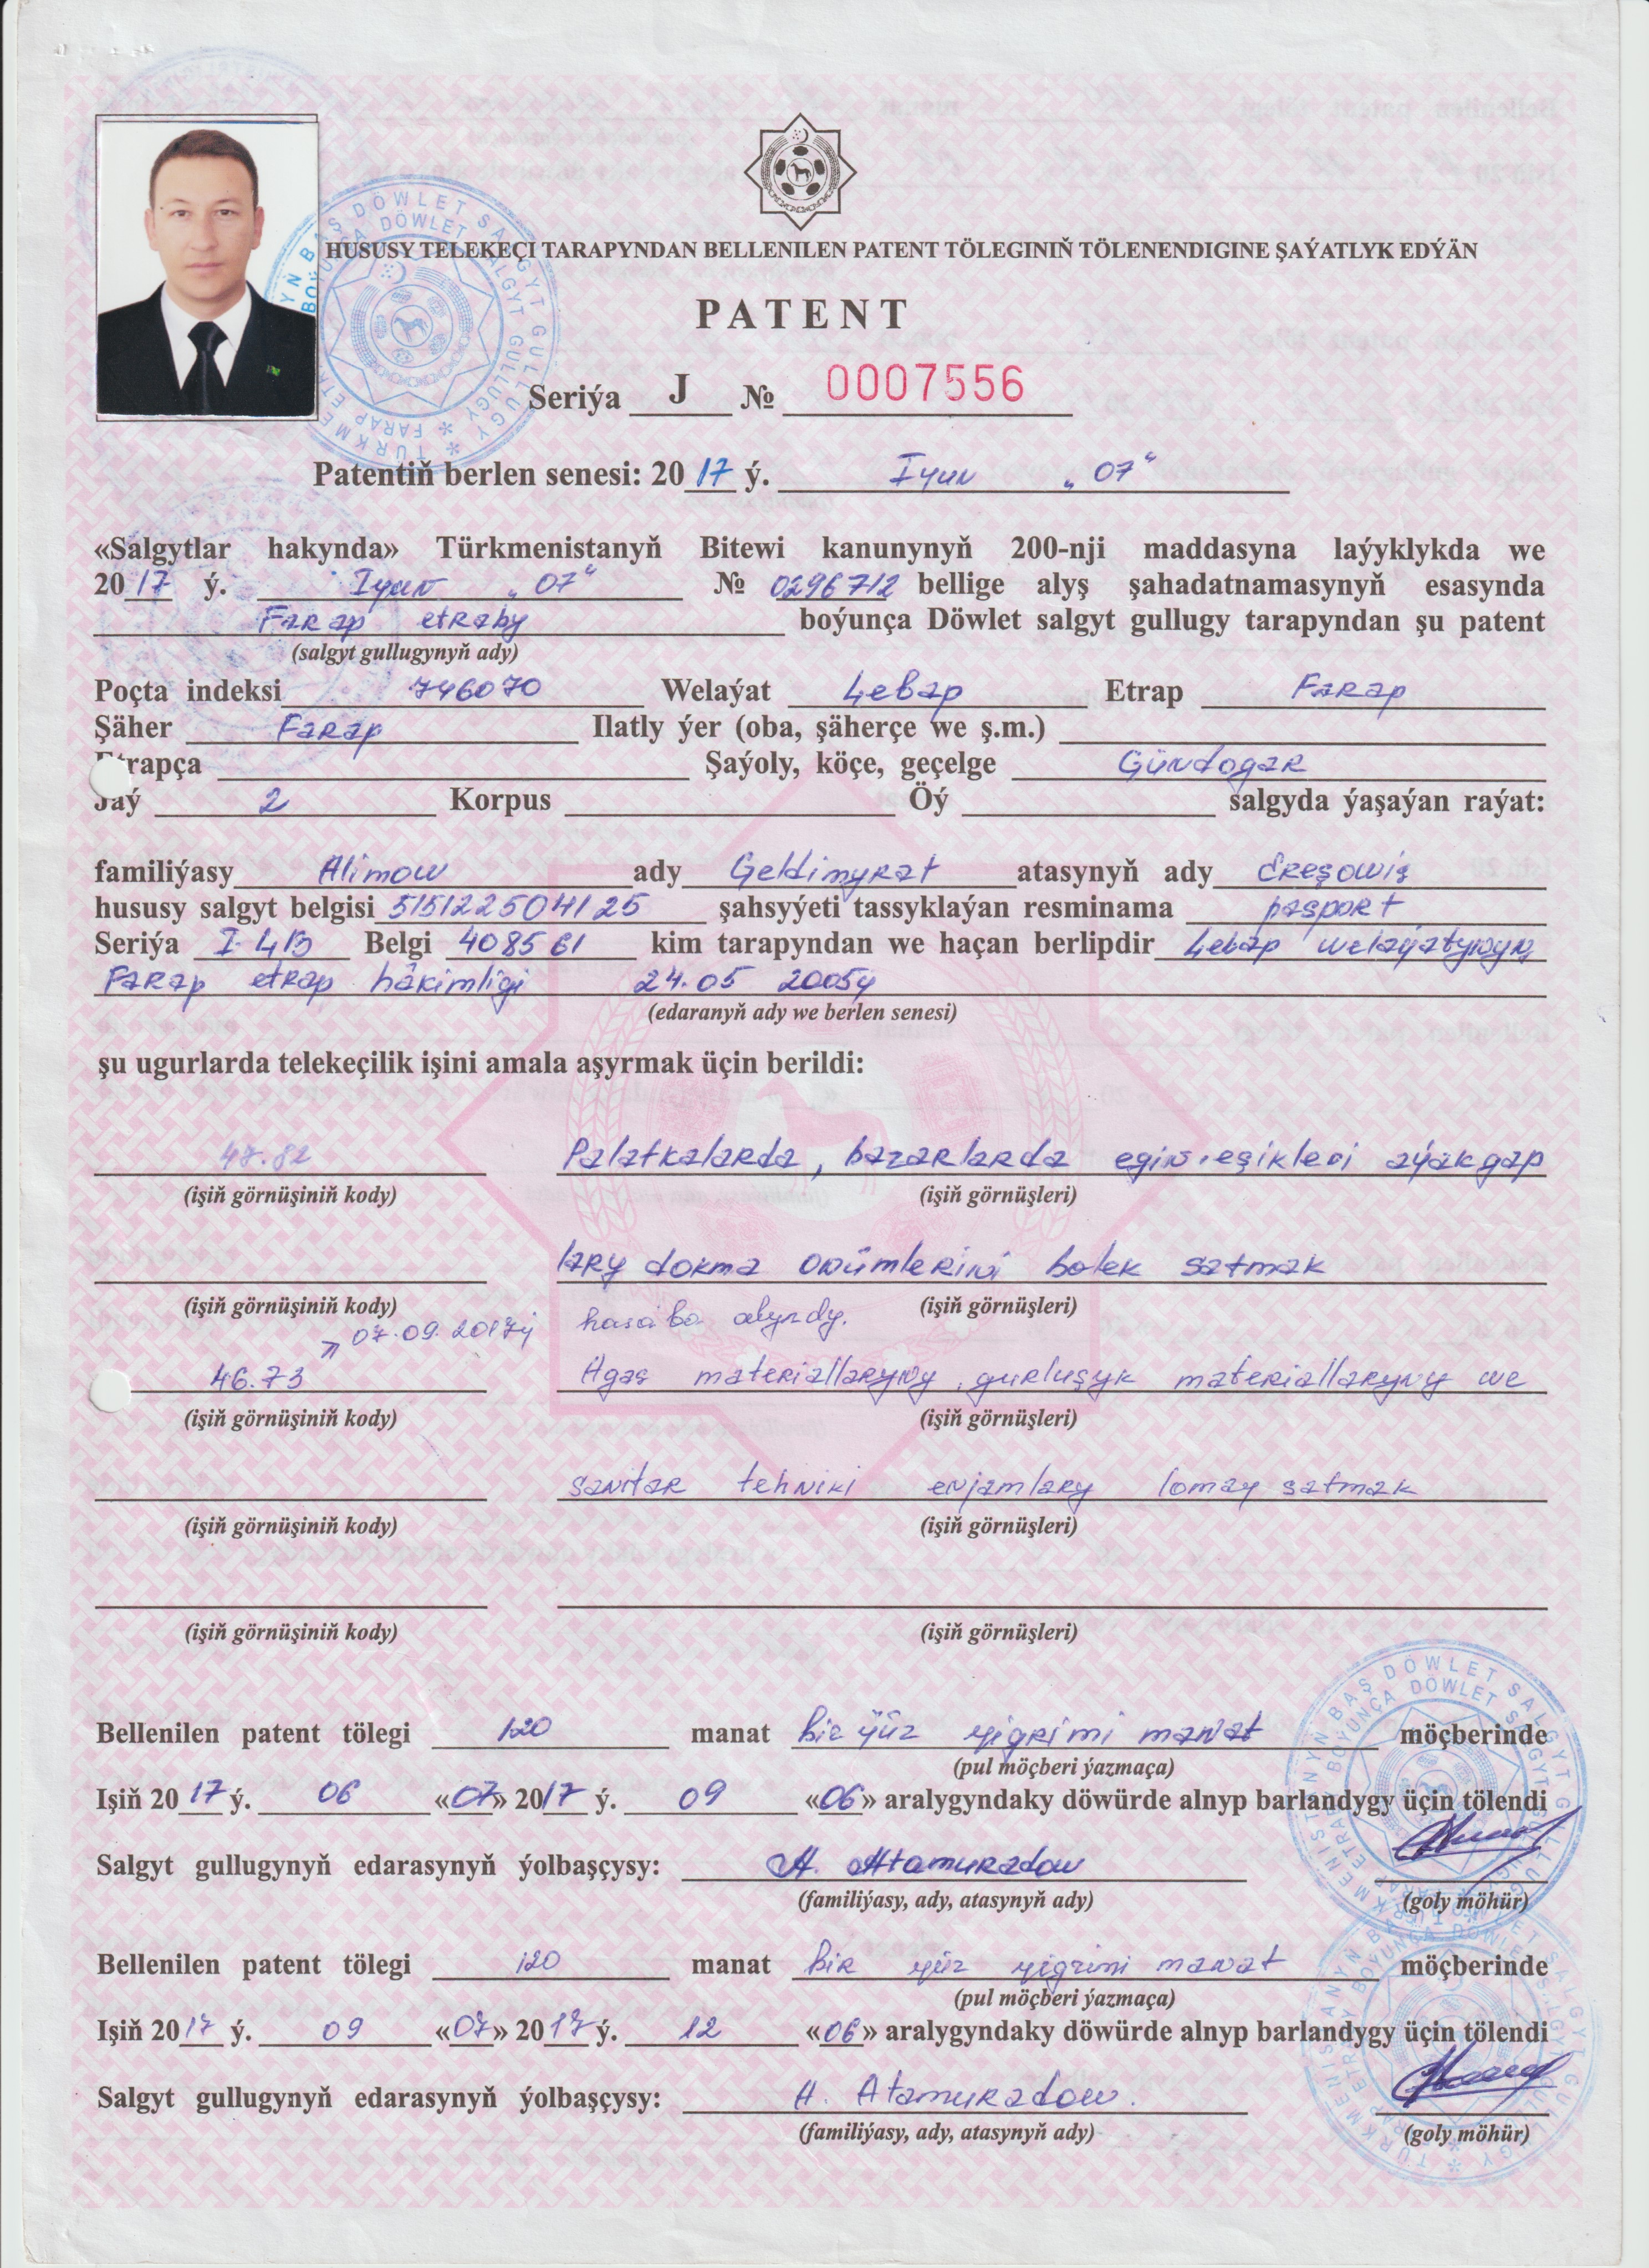 HUSUSY TELEKEÇI TARAPYNDAN BELLENILEN PATENT TÖLEGINIŇ TÖLENENDIGINE ŞAÝATLYK EDÝÄN
PATENT
Seriýa J № 0007556
Patentiň berlen senesi: 2017 ý. Iyun „07“
«Salgytlar hakynda» Türkmenistanyň Bitewi kanunynyň 200-nji maddasyna laýyklykda we
2017 ý. Iyun „07“ № 0296712 bellige alyş şahadatnamasynyň esasynda
Farap etraby boýunça Döwlet salgyt gullugy tarapyndan şu patent
(salgyt gullugynyň ady)
Poçta indeksi 746070 Welaýat Lebap Etrap Farap
Şäher Farap Ilatly ýer (oba, şäherçe we ş.m.)
Etrapça Şaýoly, köçe, geçelge Gündogar
Jaý 2 Korpus Öý salgyda ýaşaýan raýat:
familiýasy Alimow ady Geldimyrat atasynyň ady Ereşowiş
hususy salgyt belgisi 515122504125 şahsyýeti tassyklaýan resminama pasport
Seriýa I-LB Belgi 408561 kim tarapyndan we haçan berlipdir Lebap welaýatynyň
Farap etrap häkimligi 24.05 2005ý
(edaranyň ady we berlen senesi)
şu ugurlarda telekeçilik işini amala aşyrmak üçin berildi:
47.82 Palatkalarda, bazarlarda egin-eşikleri aýakgap
(işiň görnüşiniň kody) (işiň görnüşleri)
lary dokma önümlerini bölek satmak
(işiň görnüşiniň kody) (işiň görnüşleri)
07.09.2017ý hasaba alyndy.
46.73 Agaç materiallaryny, gurluşyk materiallaryny we
(işiň görnüşiniň kody) (işiň görnüşleri)
sanitar tehniki enjamlary lomaý satmak
(işiň görnüşiniň kody) (işiň görnüşleri)
(işiň görnüşiniň kody) (işiň görnüşleri)
Bellenilen patent tölegi 120 manat bir ýüz ýigrimi manat möçberinde
(pul möçberi ýazmaça)
Işiň 2017 ý. 06 «07» 2017 ý. 09 «06» aralygyndaky döwürde alnyp barlandygy üçin tölendi
Salgyt gullugynyň edarasynyň ýolbaşçysy: A. Atamuradow
(familiýasy, ady, atasynyň ady) (goly möhür)
Bellenilen patent tölegi 120 manat bir ýüz ýigrimi manat möçberinde
(pul möçberi ýazmaça)
Işiň 2017 ý. 09 «07» 2017 ý. 12 «06» aralygyndaky döwürde alnyp barlandygy üçin tölendi
Salgyt gullugynyň edarasynyň ýolbaşçysy: A. Atamuradow.
(familiýasy, ady, atasynyň ady) (goly möhür)